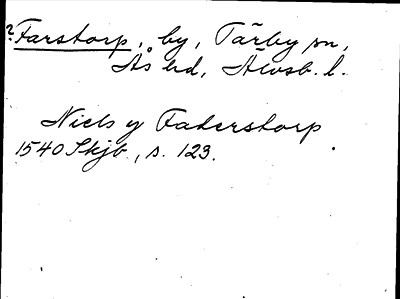 ? Farstorp, by, Tärby sn,
Ås hd, Älvsb. l.
Niels y Faderstorp
1540 Skjb., s. 123.